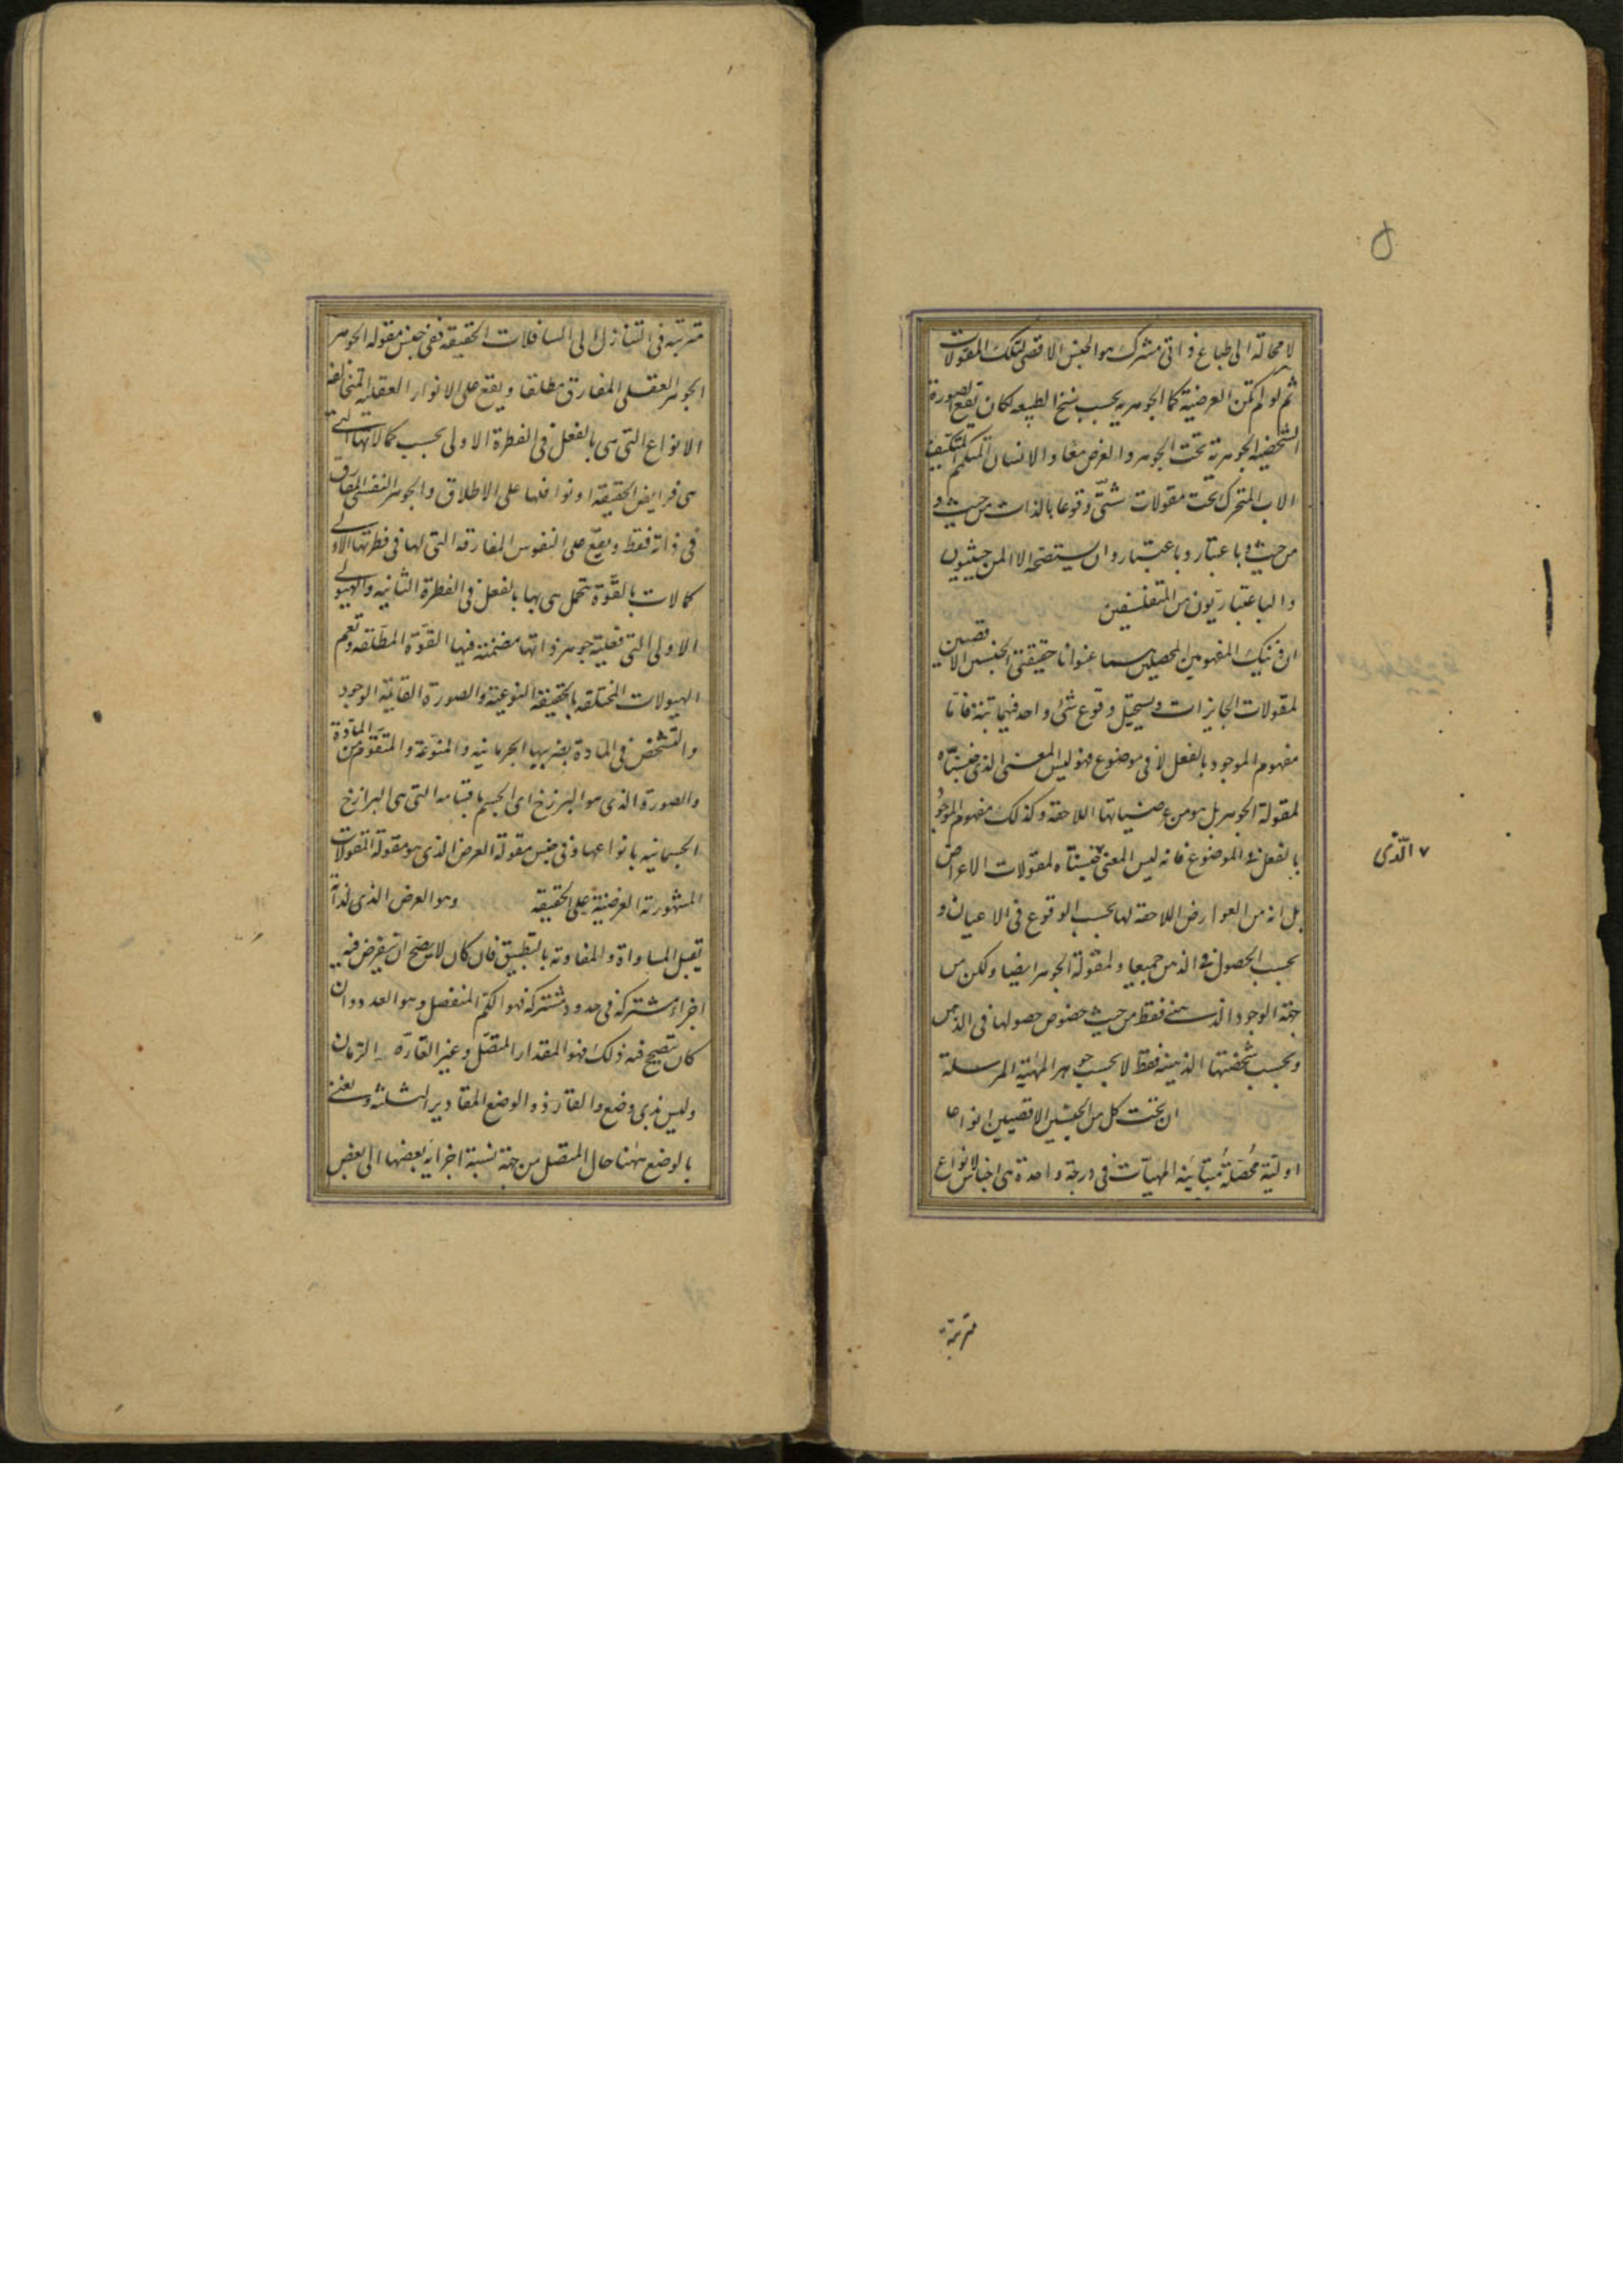 لا محالة الى طباع ذاتى مشترك هو الجنس الاقصى لتلك المقولات
ثم لو لم تكن العرضية كما الجوهرية بحسب سنخ الطبيعه لكان تقع الصورة
الشخصية الجوهرية تحت الجوهر والعرض معا والانسان المتكمم المتكيف
الاب المتحرك تحت مقولات شتّى وقوعا بالذات من حيث و
من حيث وباعتبار وباعتبار وان يستصحه الا المن حيثيون
والباعتباريون من المتفلسفين
ان ذينك المفهومين المحصلين هما عنوانا حقيقتى الجنسين الاقصيين
لمقولات الجايزات ويستحيل وقوع شئ واحد فيهما بتة فامّا
مفهوم الموجود بالفعل لا فى موضوع فهو ليس المعنى الذى جنسناه
لمقولة الجوهر بل هو من عرضياتها اللاحقة وكذلك مفهوم الموجود
بالفعل فى الموضوع فانه ليس المعنى ٧ جنسناه لمقولات الاعراض
٧ الّذى
بل انه من العوارض اللاحقة لها بحسب الوقوع فى الاعيان و
بحسب الحصول فى الذهن جميعا ولمقولة الجوهر ايضا ولكن من
جهة الوجود الذهنى فقط من حيث خصوص حصولها فى الذهن
وبحسب شخصيتها الذهنية فقط لا بحسب جوهر المهيّة المرسلة
ان تحت كل من الجنسين الاقصيين انواعا
اوليّة محُصّلة مُتباينة المهيّات فى درجة واحدة هى اجناس لانواع
مترتبة
مترتبة فى التنازل الى السافلات الحقيقه ففى جنس مقوله الجوهر
الجوهر العقلى المفارق مطلقا ويقع على الانوار العقلية المتخالفة
الانواع التى هى بالفعل فى الفطرة الاولى بحسب كمالاتها التى
هى فرايض الحقيقه او نوافلها على الاطلاق والجوهر النفسى المفارق
فى ذاته فقط ويقع على النفوس المفارقه التى لها فى فطرتها الاولى
كمالات بالقوّة تتحمل هى بها بالفعل فى الفطرة الثانيه والهيولى
الاولى التى فعلية جوهر ذاتها مضمنة فيها القوّة المطلقه وتعم
الهيولات المختلفه بالحقيقة النوعية والصورة القايمة الوجود
والتشخص فى المادة بضربيها الجرمانيه والمنوّعة والمتقوّم من المادّة
والصورة الذى هو البرزخ اى الجسم باقسامه التى هى البرازخ
الجسمانيه بانواعها وفى جنس مقولة العرض الذى هو مقولة المقولات
المشهورة العرضية على الحقيقه وهو العرض الذى لذاته
يقبل المساواة والمفاوته بالتطبيق فان كان لا يصح ان يفرض فيه
اجزاء مشتركة فى حدود مشتركة فهو الكمّ المنفصل وهو العدد وان
كان يصح فيه ذلك فهو المقدار المتصّل وغير القارّه الزمان
وليس بذى وضع والقارّ ذو الوضع المقادير الثلثة ونعنى
بالوضع ههنا حال المتصل من جهة نسبة اجزايه بعضها الى بعض